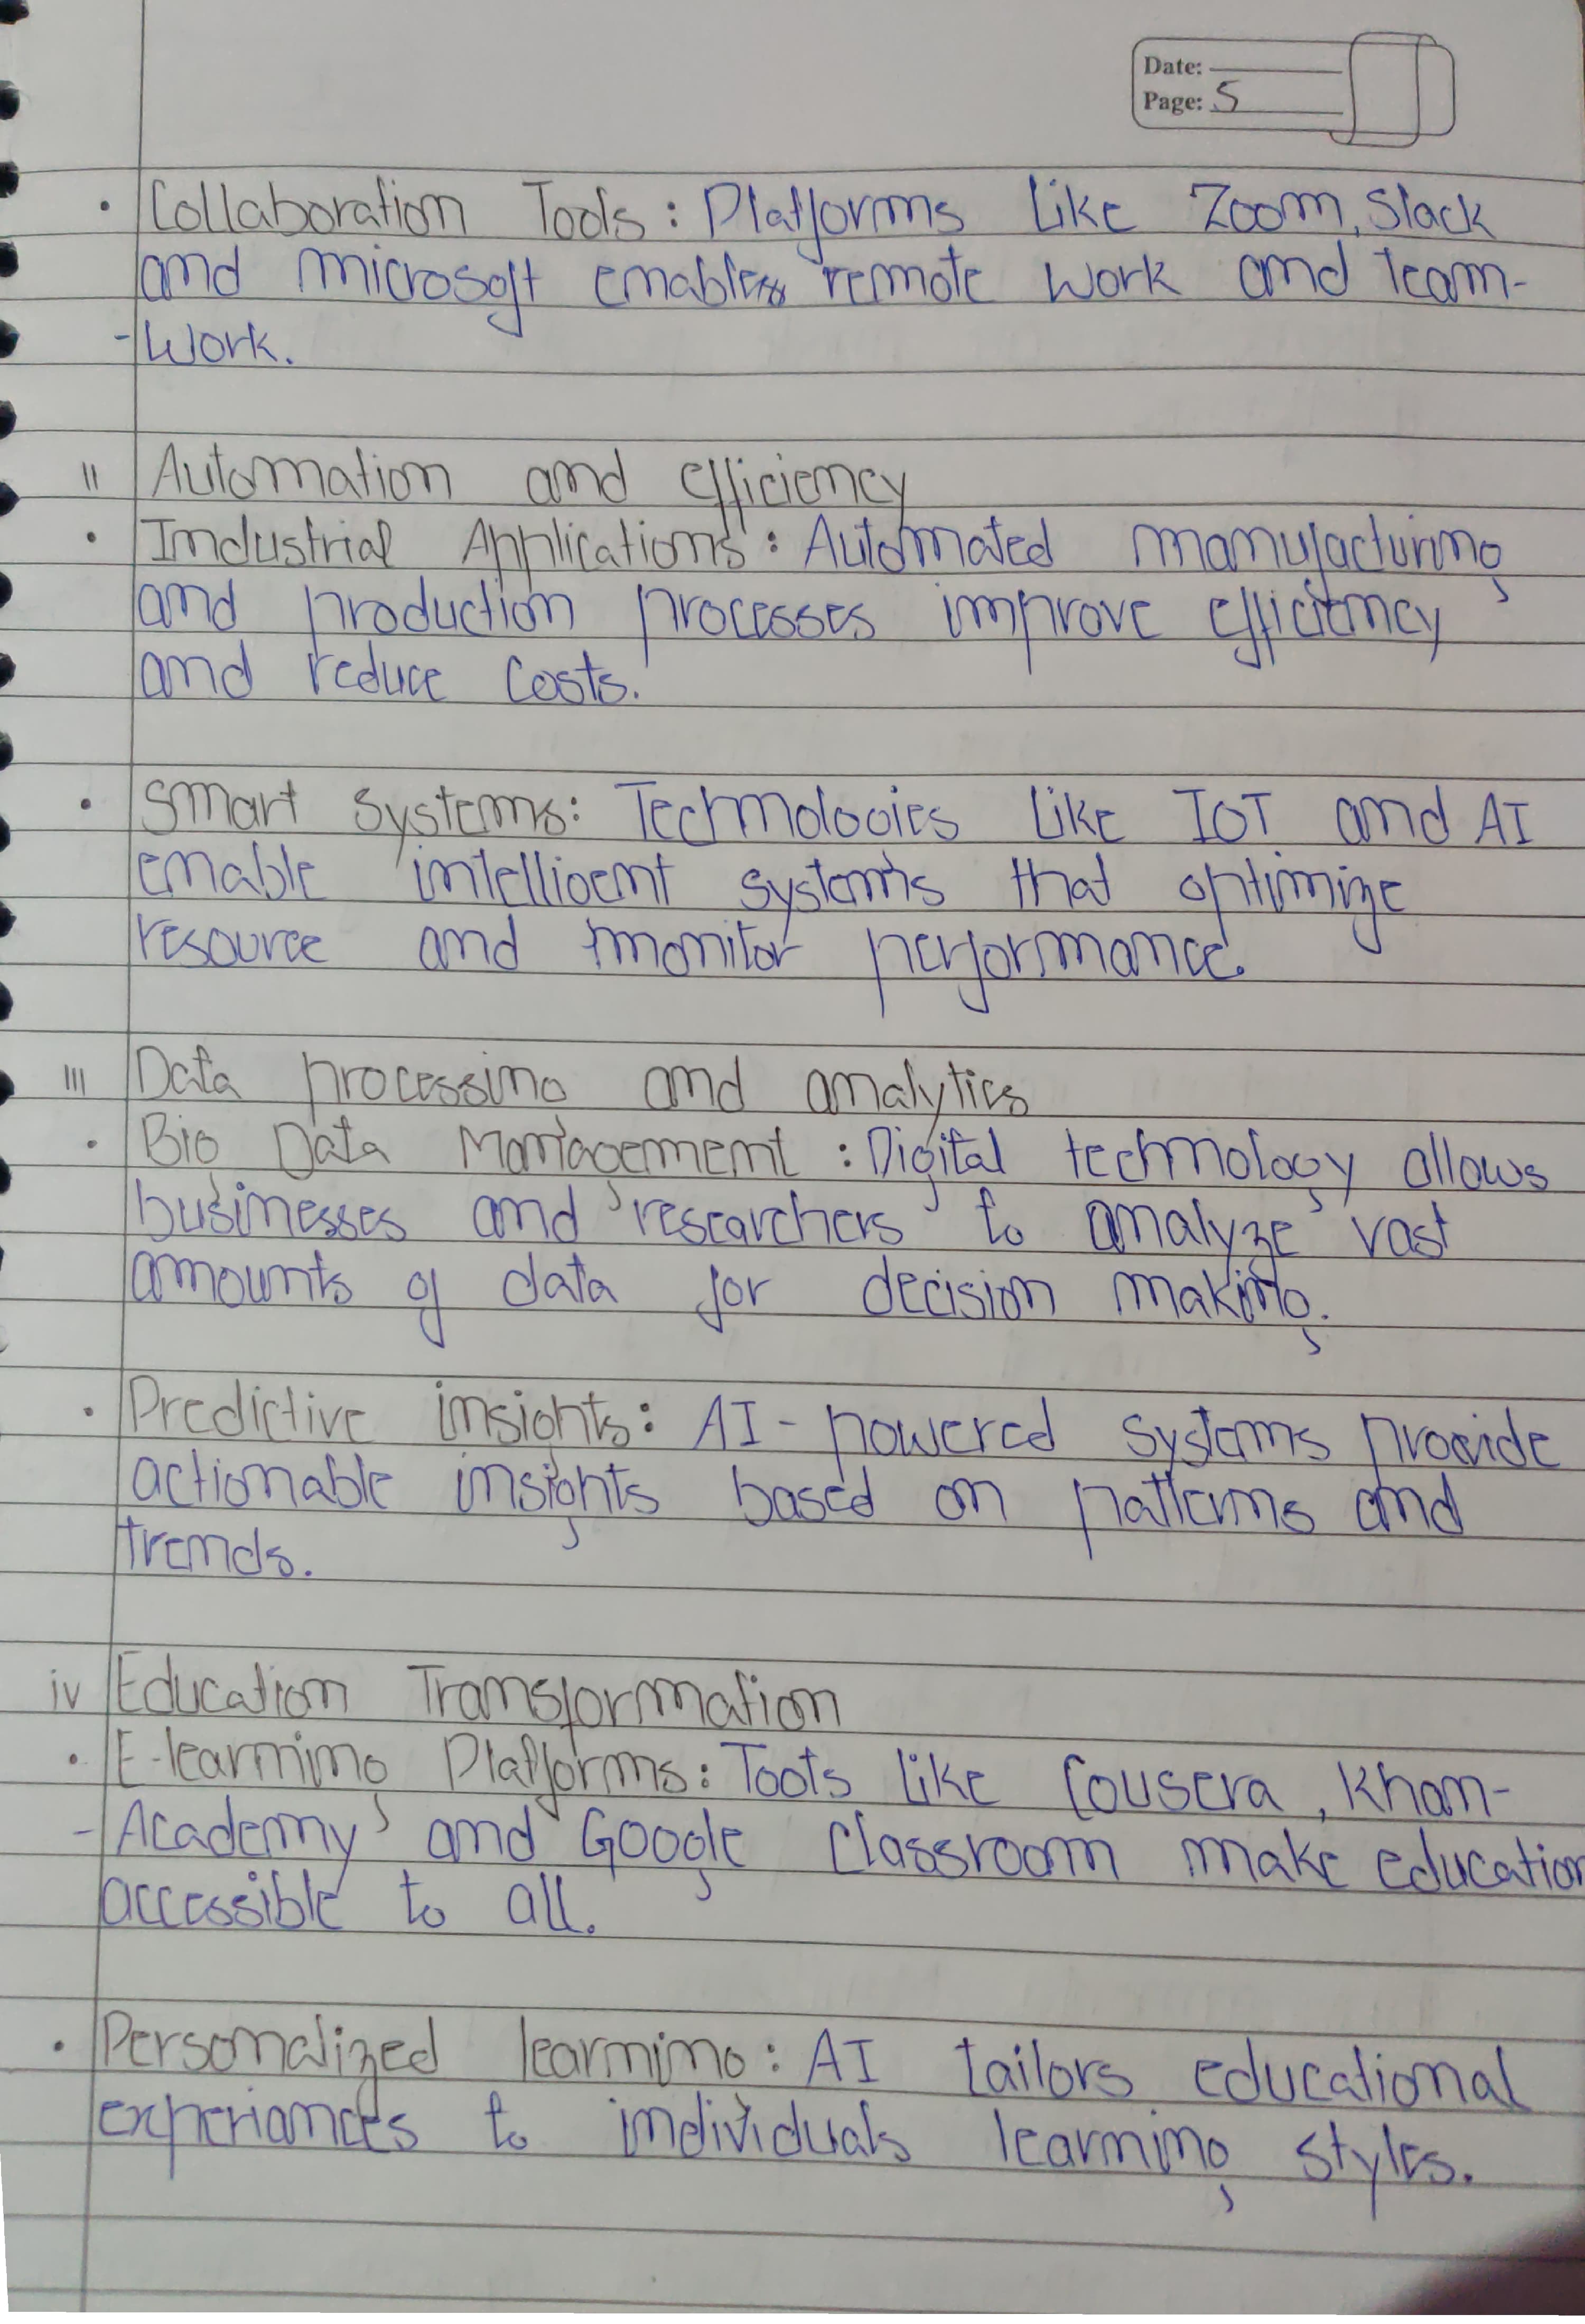 Date:
Page: 5
• Collaboration Tools : Platforms like Zoom, Slack
and microsoft enables remote work and team-
-work.
ii Automation and efficiency
• Industrial Applications : Automated manufacturing
and production processes improve efficiency
and reduce costs.
• Smart systems: Technologies like IOT and AI
enable intelligent systems that optimize
resource and monitor performance.
iii Data processing and analytics
• Big Data Management : Digital technology allows
businesses and researchers to analyze vast
amounts of data for decision making.
• Predictive insights: AI-powered systems provide
actionable insights based on patterns and
trends.
iv Education Transformation
• E-learning Platforms: Tools like Cousera, Khan-
- Academy and Google Classroom make education
accessible to all.
• Personalized learning: AI tailors educational
experiances to individuals learning styles.